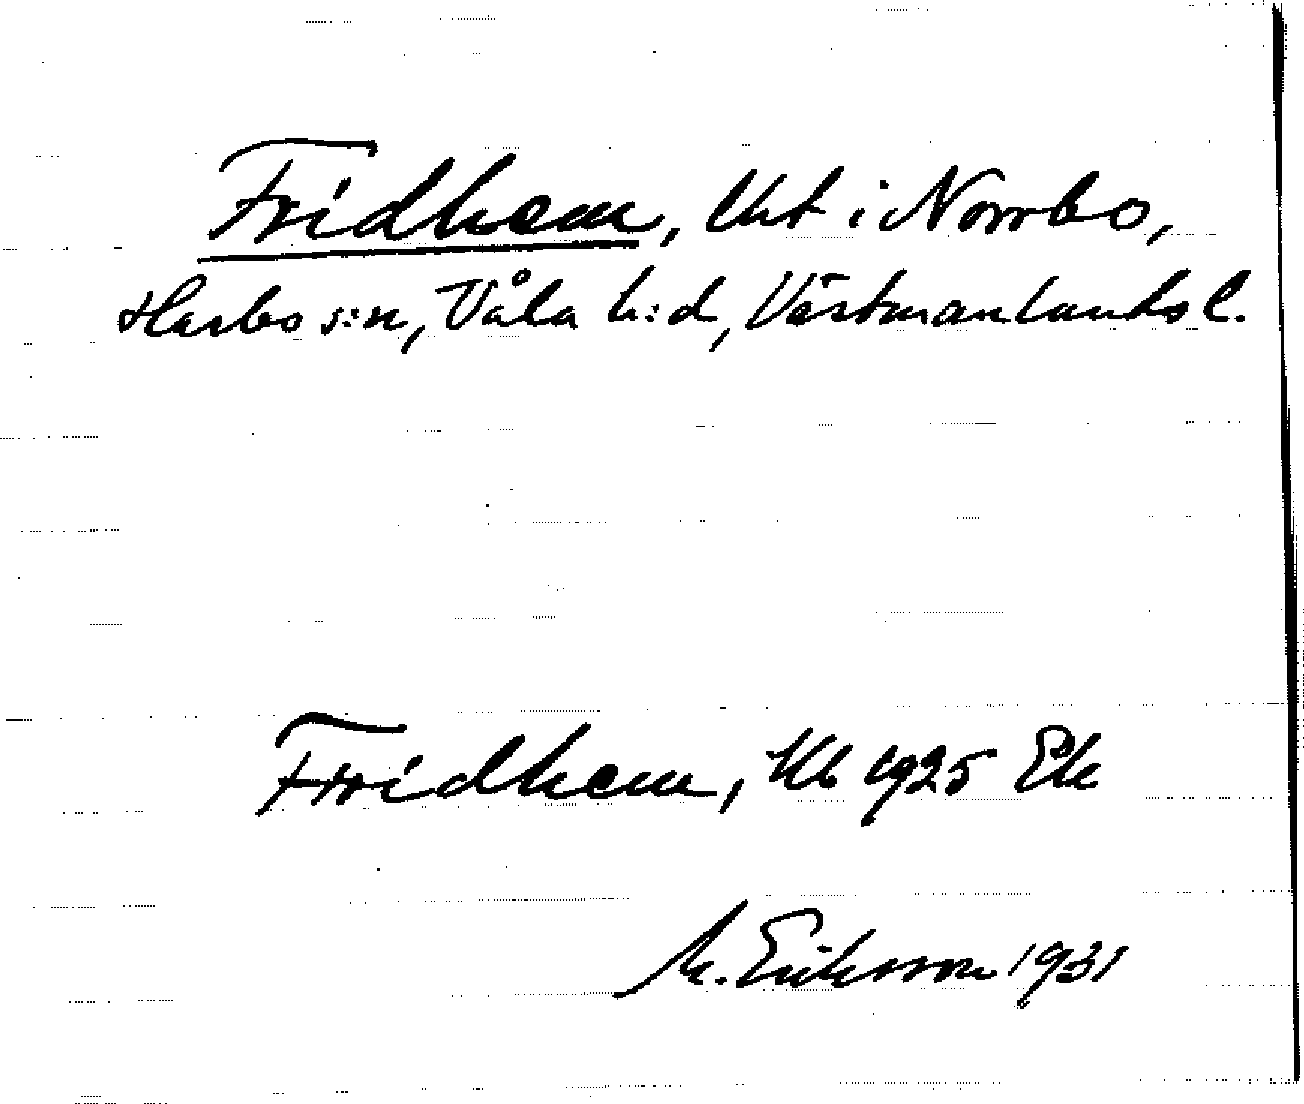 Fridhem, Uht i Norrbo,
Harbo s:n, Våla h:d, Västmanlands l.
Fridhem, Kb 1925 Ek
M. Eriksson 1931